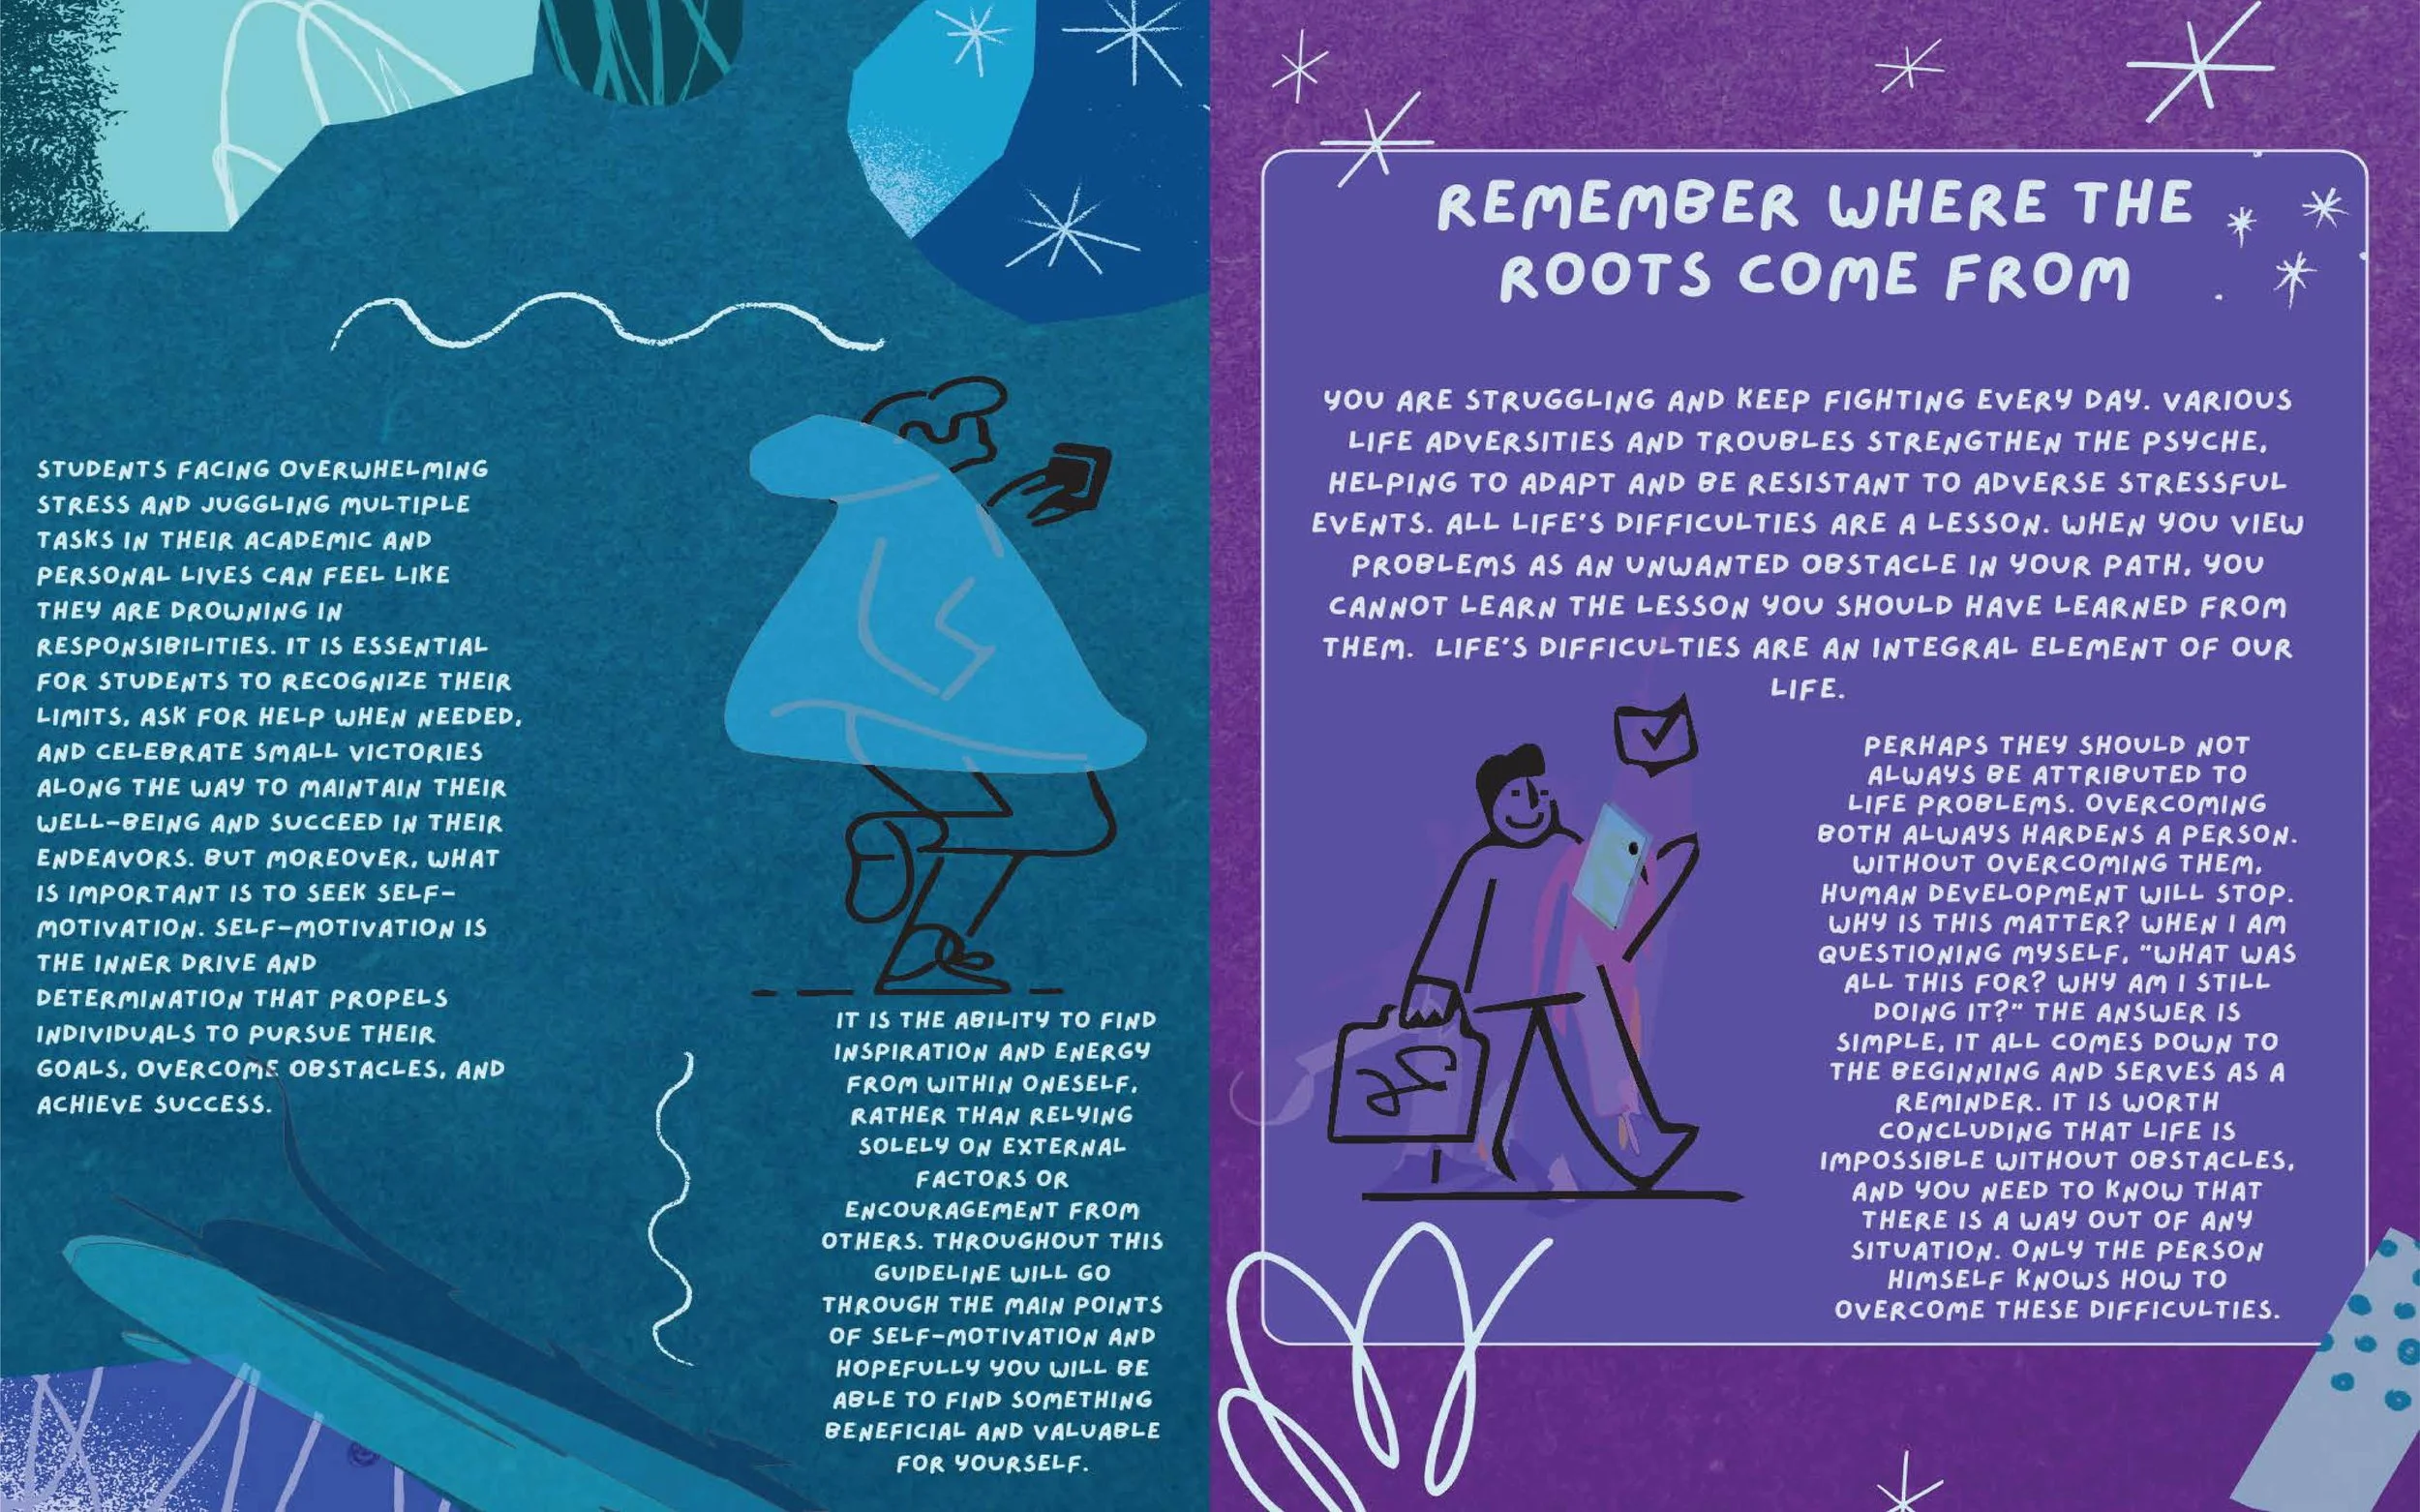 STUDENTS FACING OVERWHELMING
STRESS AND JUGGLING MULTIPLE
TASKS IN THEIR ACADEMIC AND
PERSONAL LIVES CAN FEEL LIKE
THEY ARE DROWNING IN
RESPONSIBILITIES. IT IS ESSENTIAL
FOR STUDENTS TO RECOGNIZE THEIR
LIMITS, ASK FOR HELP WHEN NEEDED,
AND CELEBRATE SMALL VICTORIES
ALONG THE WAY TO MAINTAIN THEIR
WELL-BEING AND SUCCEED IN THEIR
ENDEAVORS. BUT MOREOVER, WHAT
IS IMPORTANT IS TO SEEK SELF-
MOTIVATION. SELF-MOTIVATION IS
THE INNER DRIVE AND
DETERMINATION THAT PROPELS
INDIVIDUALS TO PURSUE THEIR
GOALS, OVERCOME OBSTACLES, AND
ACHIEVE SUCCESS.
IT IS THE ABILITY TO FIND
INSPIRATION AND ENERGY
FROM WITHIN ONESELF,
RATHER THAN RELYING
SOLELY ON EXTERNAL
FACTORS OR
ENCOURAGEMENT FROM
OTHERS. THROUGHOUT THIS
GUIDELINE WILL GO
THROUGH THE MAIN POINTS
OF SELF-MOTIVATION AND
HOPEFULLY YOU WILL BE
ABLE TO FIND SOMETHING
BENEFICIAL AND VALUABLE
FOR YOURSELF.
REMEMBER WHERE THE
ROOTS COME FROM
YOU ARE STRUGGLING AND KEEP FIGHTING EVERY DAY. VARIOUS
LIFE ADVERSITIES AND TROUBLES STRENGTHEN THE PSYCHE,
HELPING TO ADAPT AND BE RESISTANT TO ADVERSE STRESSFUL
EVENTS. ALL LIFE'S DIFFICULTIES ARE A LESSON. WHEN YOU VIEW
PROBLEMS AS AN UNWANTED OBSTACLE IN YOUR PATH, YOU
CANNOT LEARN THE LESSON YOU SHOULD HAVE LEARNED FROM
THEM. LIFE'S DIFFICULTIES ARE AN INTEGRAL ELEMENT OF OUR
LIFE.
PERHAPS THEY SHOULD NOT
ALWAYS BE ATTRIBUTED TO
LIFE PROBLEMS. OVERCOMING
BOTH ALWAYS HARDENS A PERSON.
WITHOUT OVERCOMING THEM,
HUMAN DEVELOPMENT WILL STOP.
WHY IS THIS MATTER? WHEN I AM
QUESTIONING MYSELF, "WHAT WAS
ALL THIS FOR? WHY AM I STILL
DOING IT?" THE ANSWER IS
SIMPLE, IT ALL COMES DOWN TO
THE BEGINNING AND SERVES AS A
REMINDER. IT IS WORTH
CONCLUDING THAT LIFE IS
IMPOSSIBLE WITHOUT OBSTACLES,
AND YOU NEED TO KNOW THAT
THERE IS A WAY OUT OF ANY
SITUATION. ONLY THE PERSON
HIMSELF KNOWS HOW TO
OVERCOME THESE DIFFICULTIES.